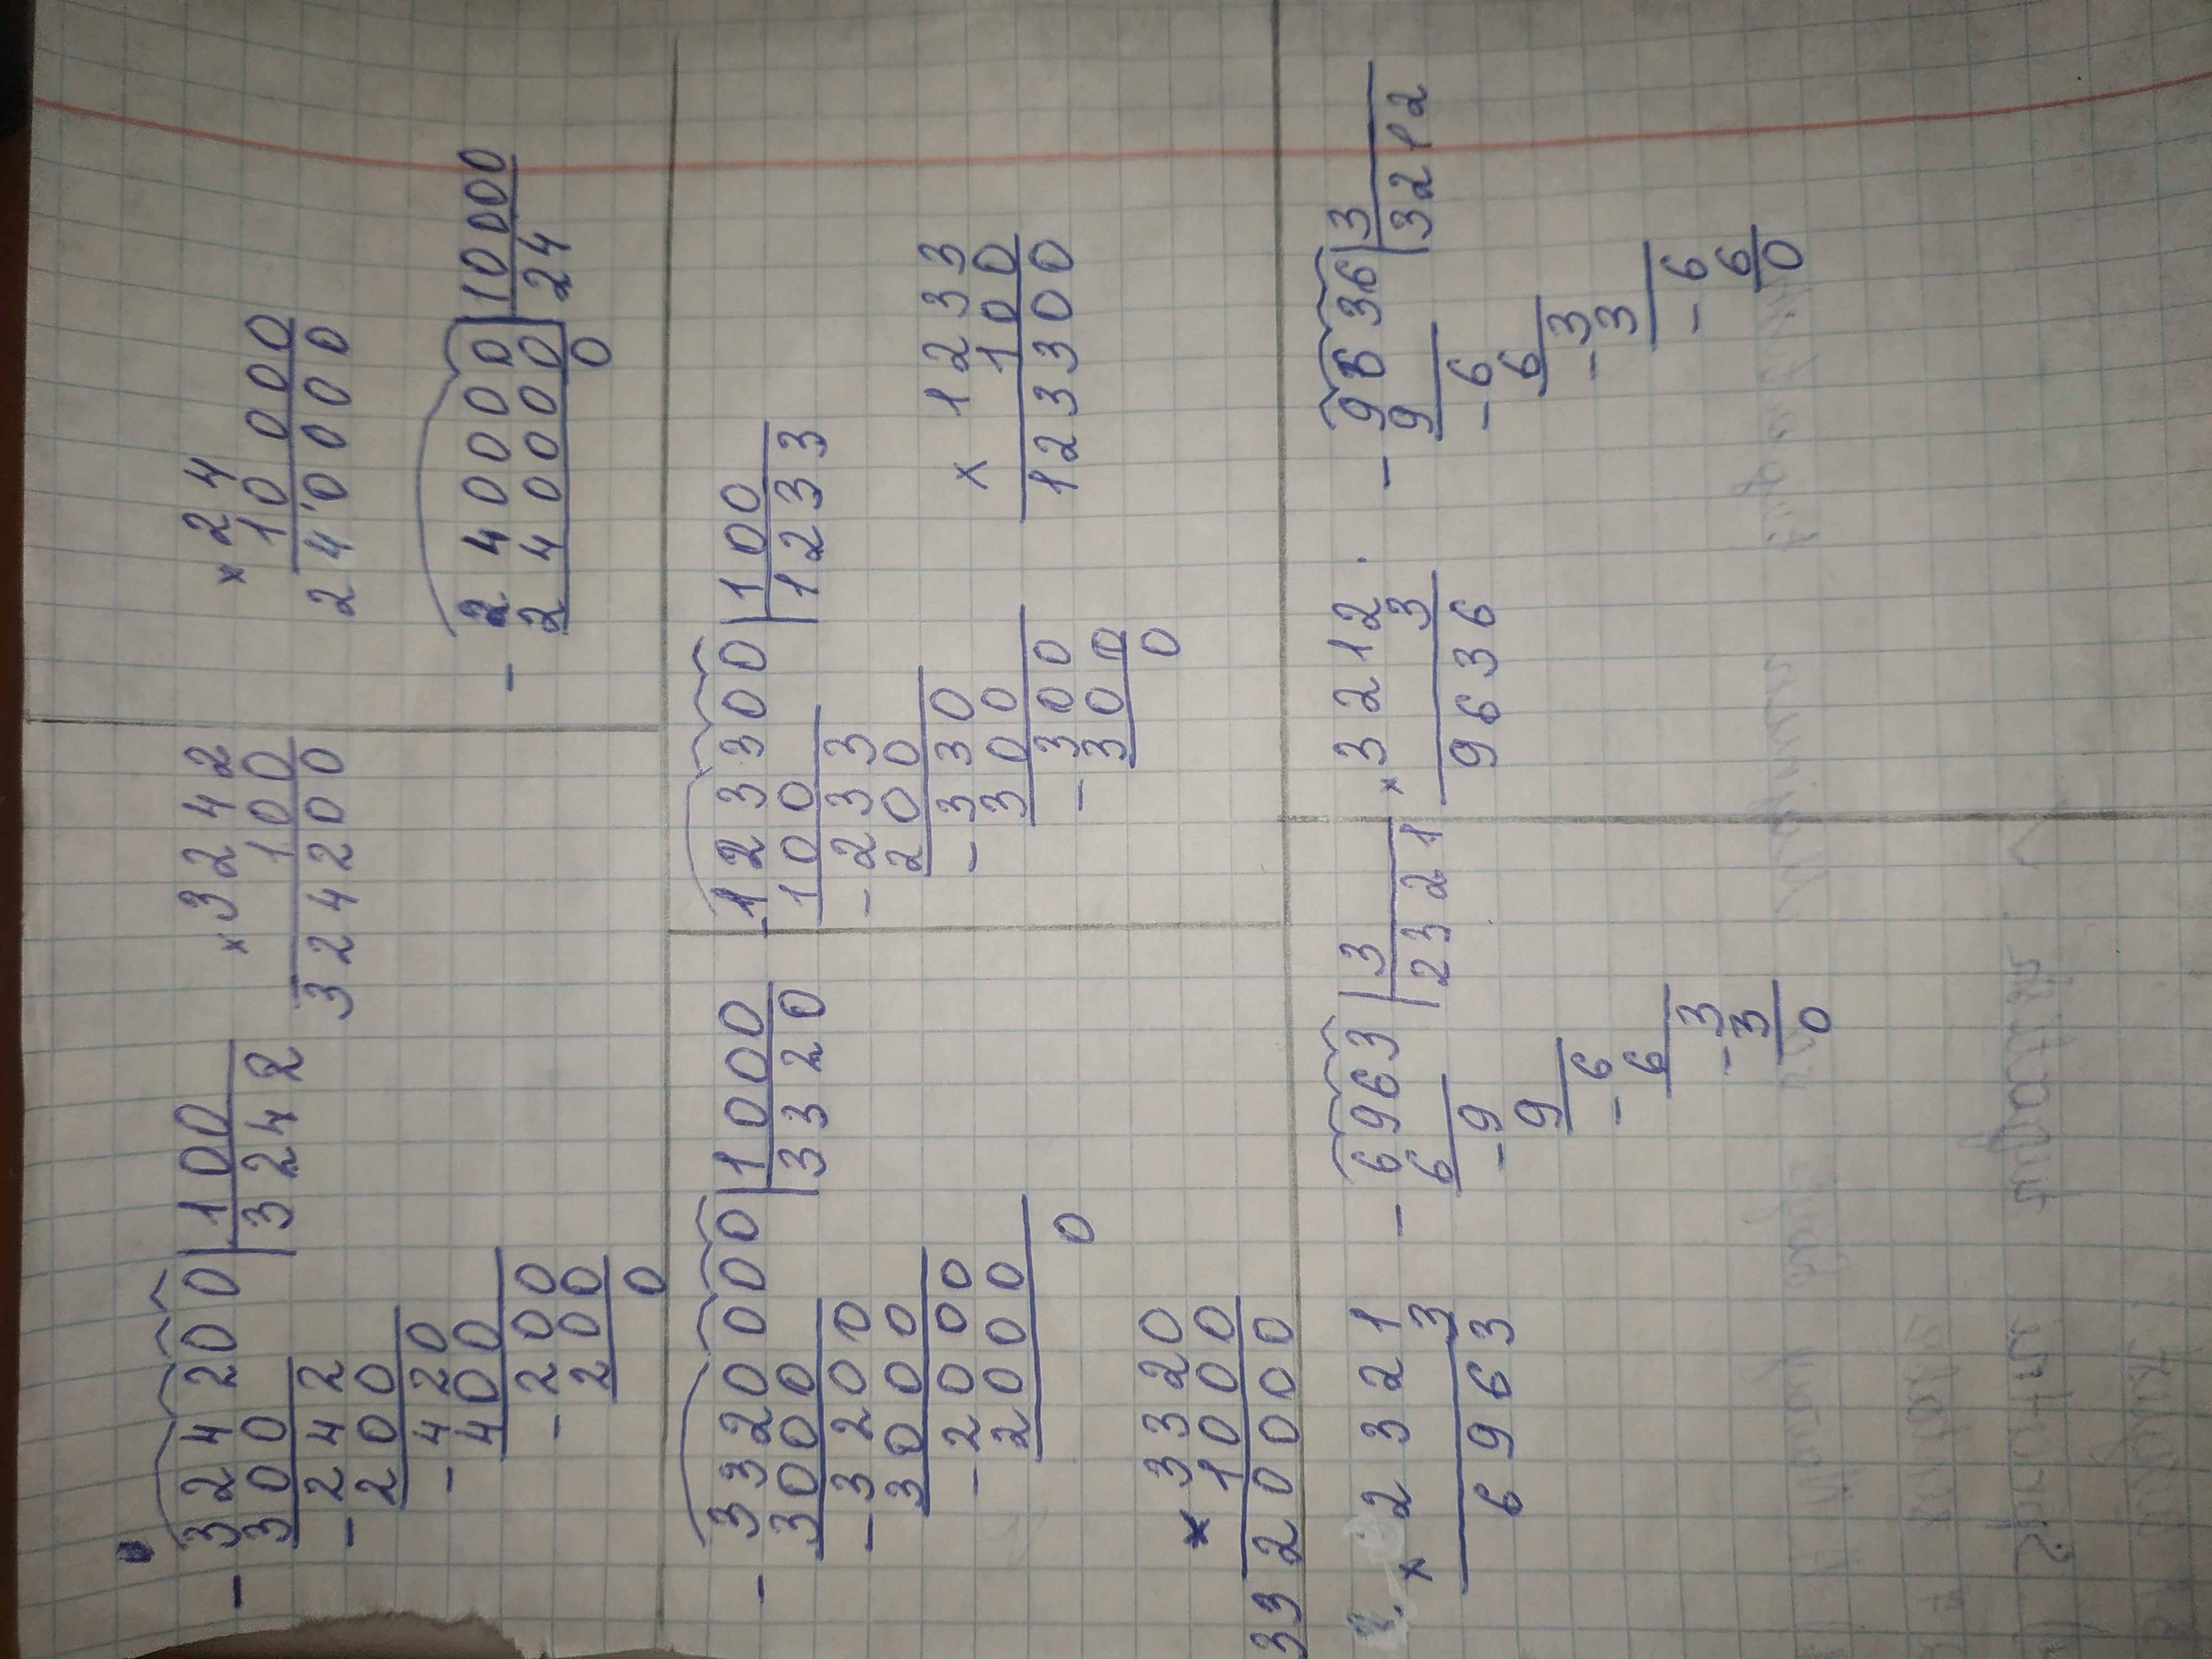 - 324200 | 100
300 | 3242
- 242
200
- 420
400
- 200
200
0
× 3242
100
324200
× 24
10000
240000
- 240000 | 10000
240000 | 24
0
- 3320000 | 1000
3000 | 3320
- 3200
3000
- 2000
2000
0
× 3320
1000
3320000
- 123300 | 100
100 | 1233
- 233
200
- 330
300
- 300
300
0
× 1233
100
123300
× 2321
3
6963
- 6963 | 3
6 | 2321
- 9
9
- 6
6
- 3
3
0
× 3212
3
9636
- 9636 | 3
9 | 3212
- 6
6
- 3
3
- 6
6
0